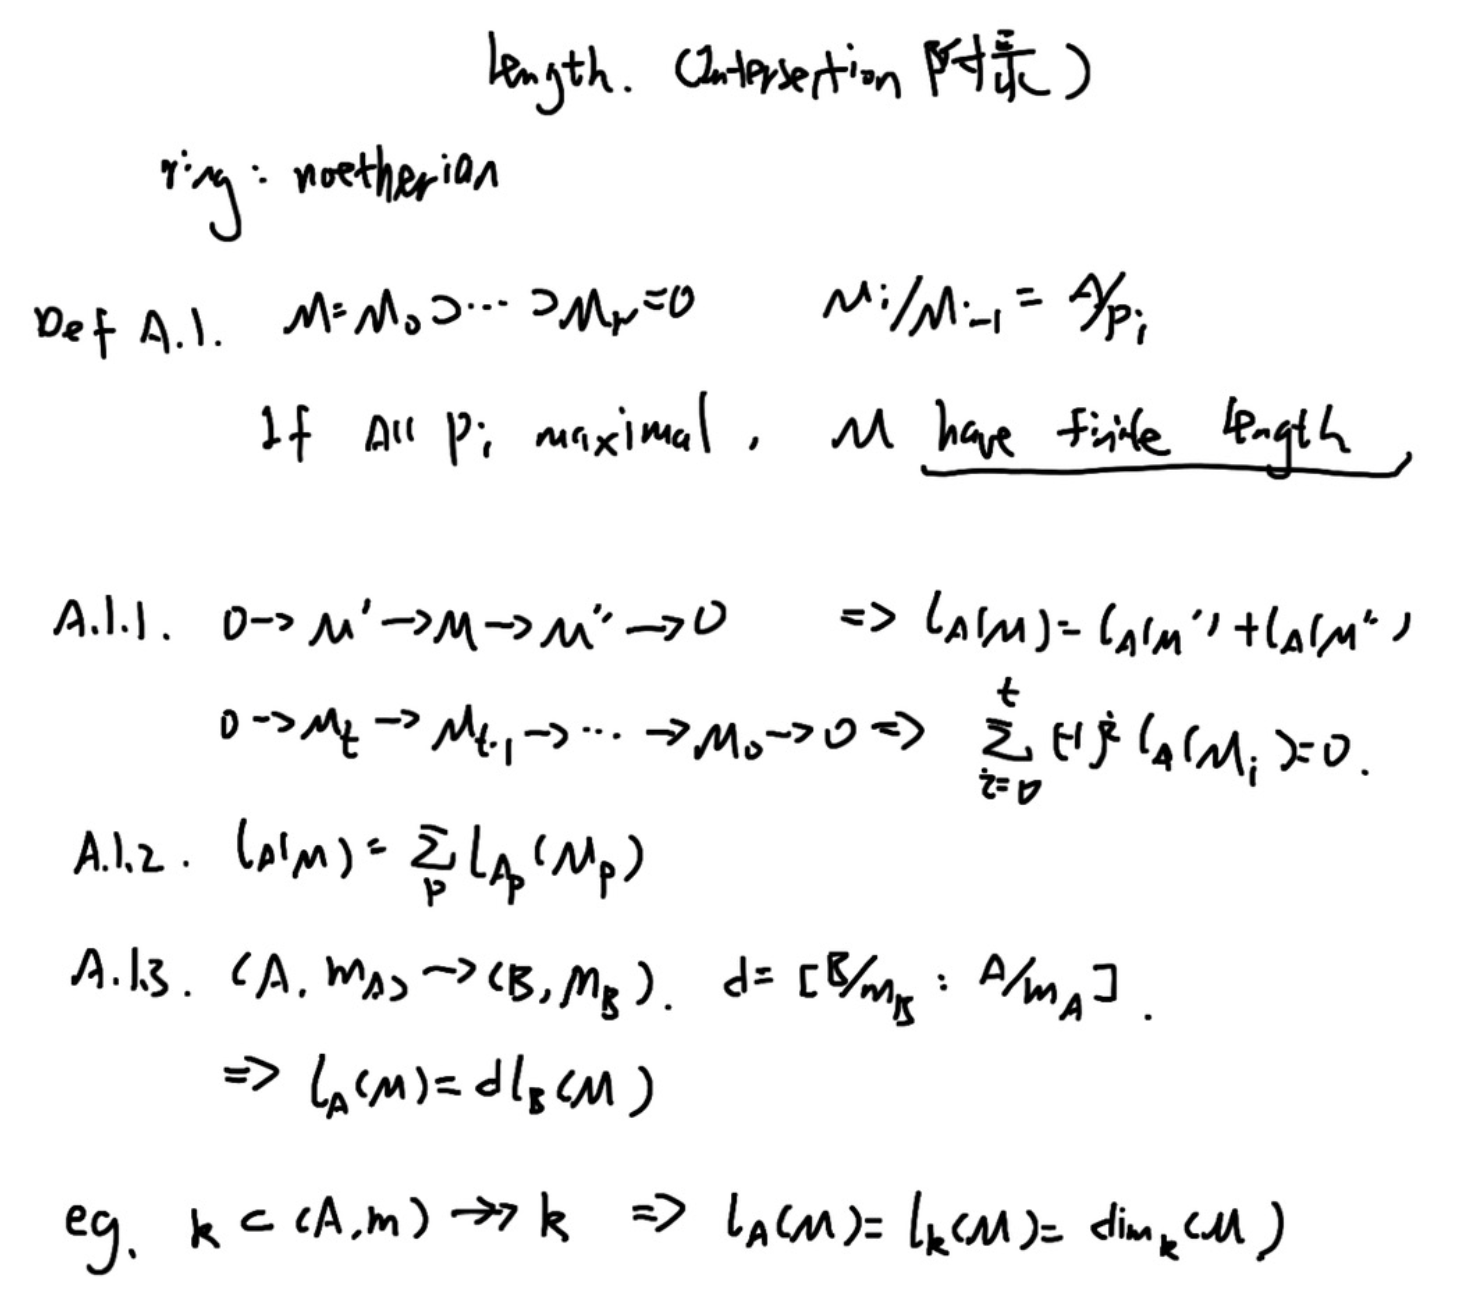 length. (Intersertion 附录)
ring: noetherian
Def A.1. M=M₀⊃⋯⊃Mᵣ=0 Mi/Mi₋₁ = A/pᵢ
If All pᵢ maximal, M have finite length
A.1.1. 0→M'→M→M''→0 => l_A(M)=l_A(M')+l_A(M'')
0→M_t→M_{t-1}→⋯→M₀→0 => ∑_{i=0}^{t} (-1)^i l_A(M_i)=0.
A.1.2. l_A(M)=∑_p l_{A_p}(M_p)
A.1.3. (A, m_A)→(B, m_B). d=[B/m_B : A/m_A].
=> l_A(M)=d l_B(M)
eg. k⊂(A,m)↠k => l_A(M)=l_k(M)=dim_k(M)